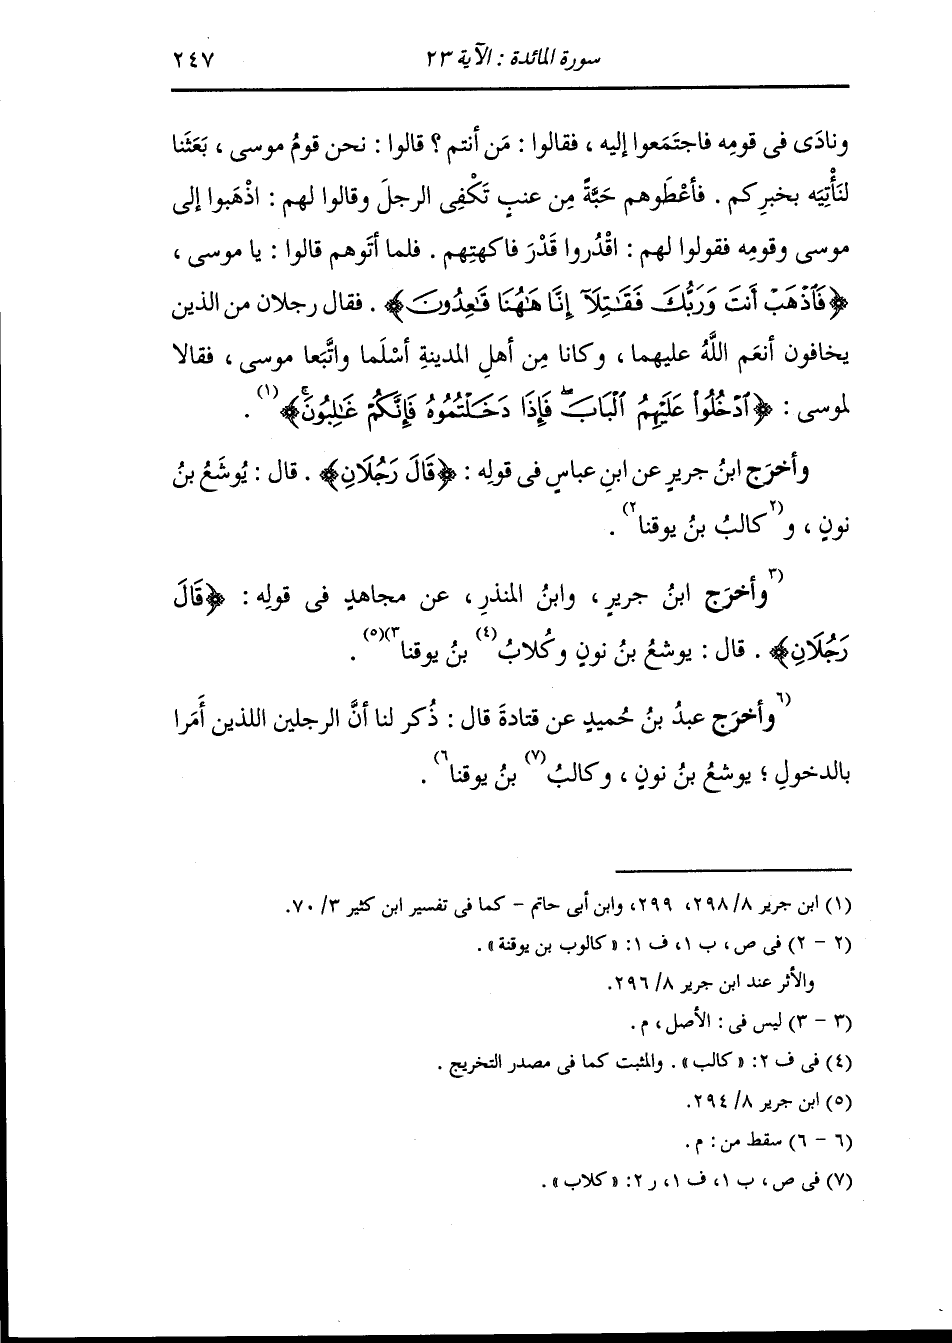 سورة المائدة : الآية ٢٣ ٢٤٧
ونادَى فى قومِه فاجتَمَعوا إليه ، فقالوا : مَن أنتم ؟ قالوا : نحن قومُ موسى ، بَعَثَنا
لنَأْتِيَه بخبرِكم . فأعْطَوهم حَبَّةً مِن عنبٍ تَكْفِى الرجلَ وقالوا لهم : اذْهَبوا إلى
موسى وقومِه فقولوا لهم : اقْدُروا قَدْرَ فاكهتِهم . فلما أتَوهم قالوا : يا موسى ،
﴿فَٱذْهَبْ أَنتَ وَرَبُّكَ فَقَـٰتِلَآ إِنَّا هَـٰهُنَا قَـٰعِدُونَ﴾ . فقال رجلان من الذين
يخافون أنعَم اللَّهُ عليهما ، وكانا مِن أهلِ المدينةِ أسْلَما واتَّبَعا موسى ، فقالا
لموسى : ﴿ٱدْخُلُوا۟ عَلَيْهِمُ ٱلْبَابَ ۖ فَإِذَا دَخَلْتُمُوهُ فَإِنَّكُمْ غَـٰلِبُونَ ۚ﴾(١) .
وأخرَج ابنُ جريرٍ عن ابنِ عباسٍ فى قولِه : ﴿قَالَ رَجُلَانِ﴾ . قال : يُوشَعُ بنُ
نونٍ ، و(٢كالبُ بنُ يوقنا٢) .
(٣وأخرَج ابنُ جريرٍ ، وابنُ المنذرِ ، عن مجاهدٍ فى قولِه : ﴿قَالَ
رَجُلَانِ﴾ . قال : يوشعُ بنُ نونٍ وكُلابُ(٤) بنُ يوقنا٣)(٥) .
(٦وأخرَج عبدُ بنُ حُميدٍ عن قتادةَ قال : ذُكر لنا أنَّ الرجلين اللذين أَمَرا
بالدخولِ ؛ يوشعُ بنُ نونٍ ، وكالبُ(٧) بنُ يوقنا٦) .
(١) ابن جرير ٨/ ٢٩٨، ٢٩٩، وابن أبى حاتم – كما فى تفسير ابن كثير ٣/ ٧٠.
(٢ – ٢) فى ص ، ب ١، ف ١: « كالوب بن يوقنة » .
والأثر عند ابن جرير ٨/ ٢٩٦.
(٣ – ٣) ليس فى : الأصل ، م .
(٤) فى ف ٢: « كالب » . والمثبت كما فى مصدر التخريج .
(٥) ابن جرير ٨/ ٢٩٤.
(٦ – ٦) سقط من : م .
(٧) فى ص ، ب ١، ف ١، ر ٢: « كلاب » .